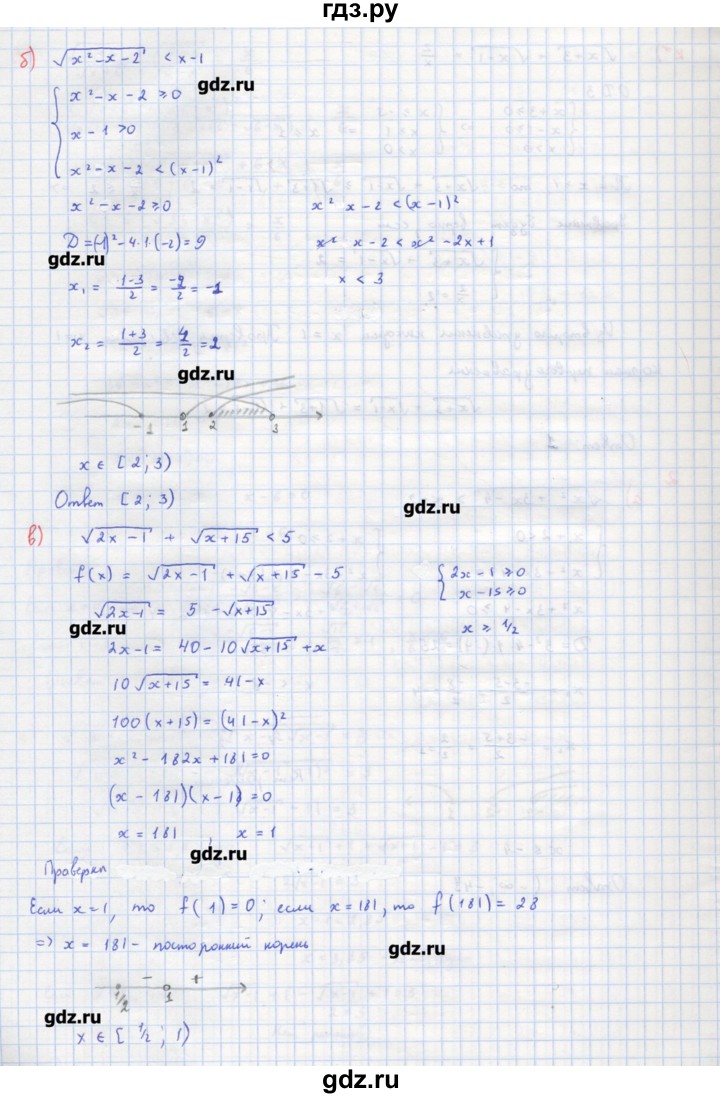 гдз.ру
б) √(x² - x - 2) < x - 1
gdz.ru
x² - x - 2 ≥ 0
x - 1 > 0
x² - x - 2 < (x - 1)²
x² - x - 2 ≥ 0
x² x - 2 < (x - 1)²
D = (-1)² - 4·1·(-2) = 9
x² x - 2 < x² - 2x + 1
gdz.ru
x₁ = (1-3)/2 = -2/2 = -1
x < 3
x₂ = (1+3)/2 = 4/2 = 2
gdz.ru
-1 1 2 3
x ∈ [2; 3)
Ответ [2; 3)
gdz.ru
в) √(2x - 1) + √(x + 15) < 5
f(x) = √(2x - 1) + √(x + 15) - 5
2x - 1 ≥ 0
x - 15 ≥ 0
√(2x - 1) = 5 - √(x + 15)
gdz.ru
x ≥ 1/2
2x - 1 = 40 - 10√(x + 15) + x
10√(x + 15) = 41 - x
100(x + 15) = (41 - x)²
x² - 182x + 181 = 0
(x - 181)(x - 1) = 0
x = 181, x = 1
gdz.ru
Проверка
Если x = 1, то f(1) = 0; если x = 181, то f(181) = 28
=> x = 181 - посторонний корень
gdz.ru
- +
1/2 1
gdz.ru
x ∈ [1/2; 1)
gdz.ru